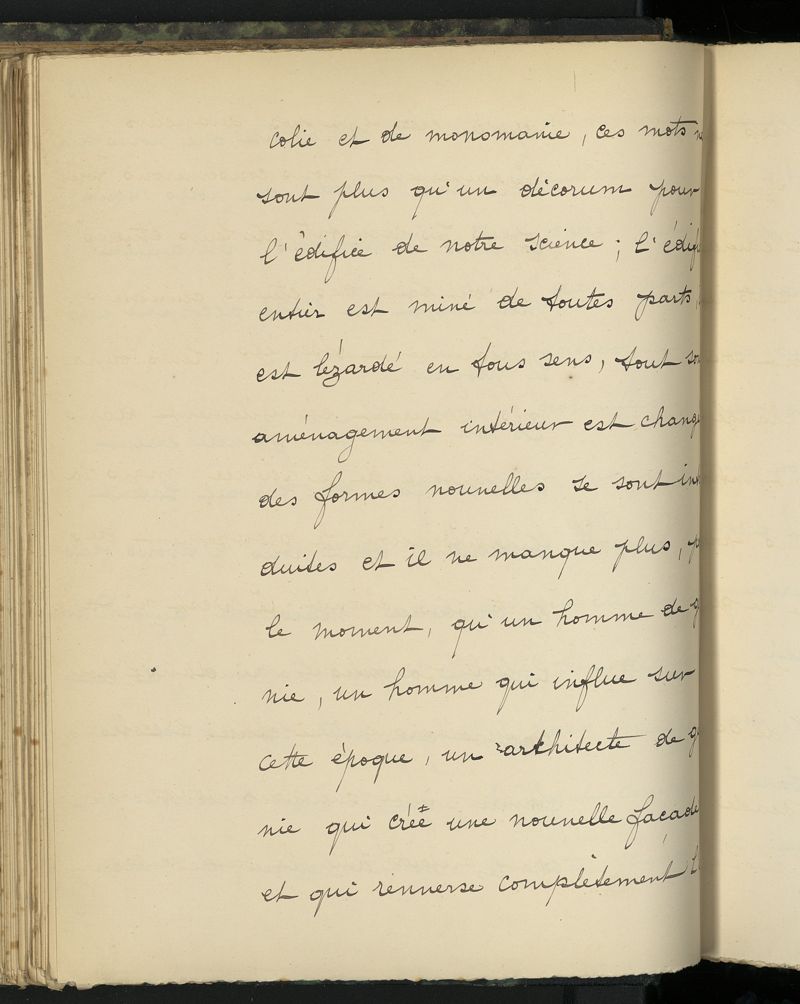 colie et de monomanie, ces mots n
sont plus qu'un décorum pour
l'édifice de notre science; l'édif
entier est miné de toutes parts,
est lézardé en tous sens, tout so
aménagement intérieur est chang
des formes nouvelles se sont int
duites et il ne manque plus, p
le moment, qu'un homme de g
nie, un homme qui influe sur
cette époque, un architecte de g
nie qui crée une nouvelle façade
et qui renverse complètement l